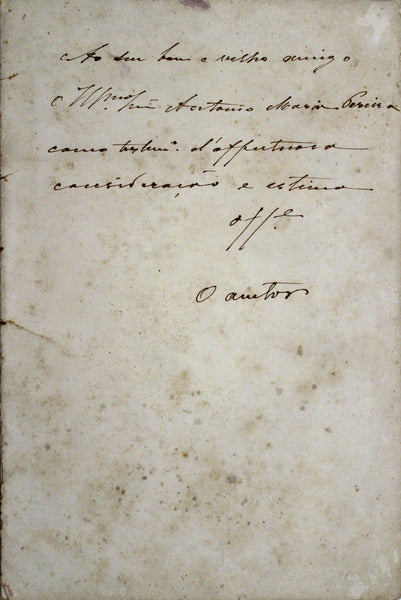 Ao seu bom e velho amigo
O Illmo. Snr. Antonio Maria Pereira
como testemo. d'affectuosa
consideração e estima
offe.
O auctor